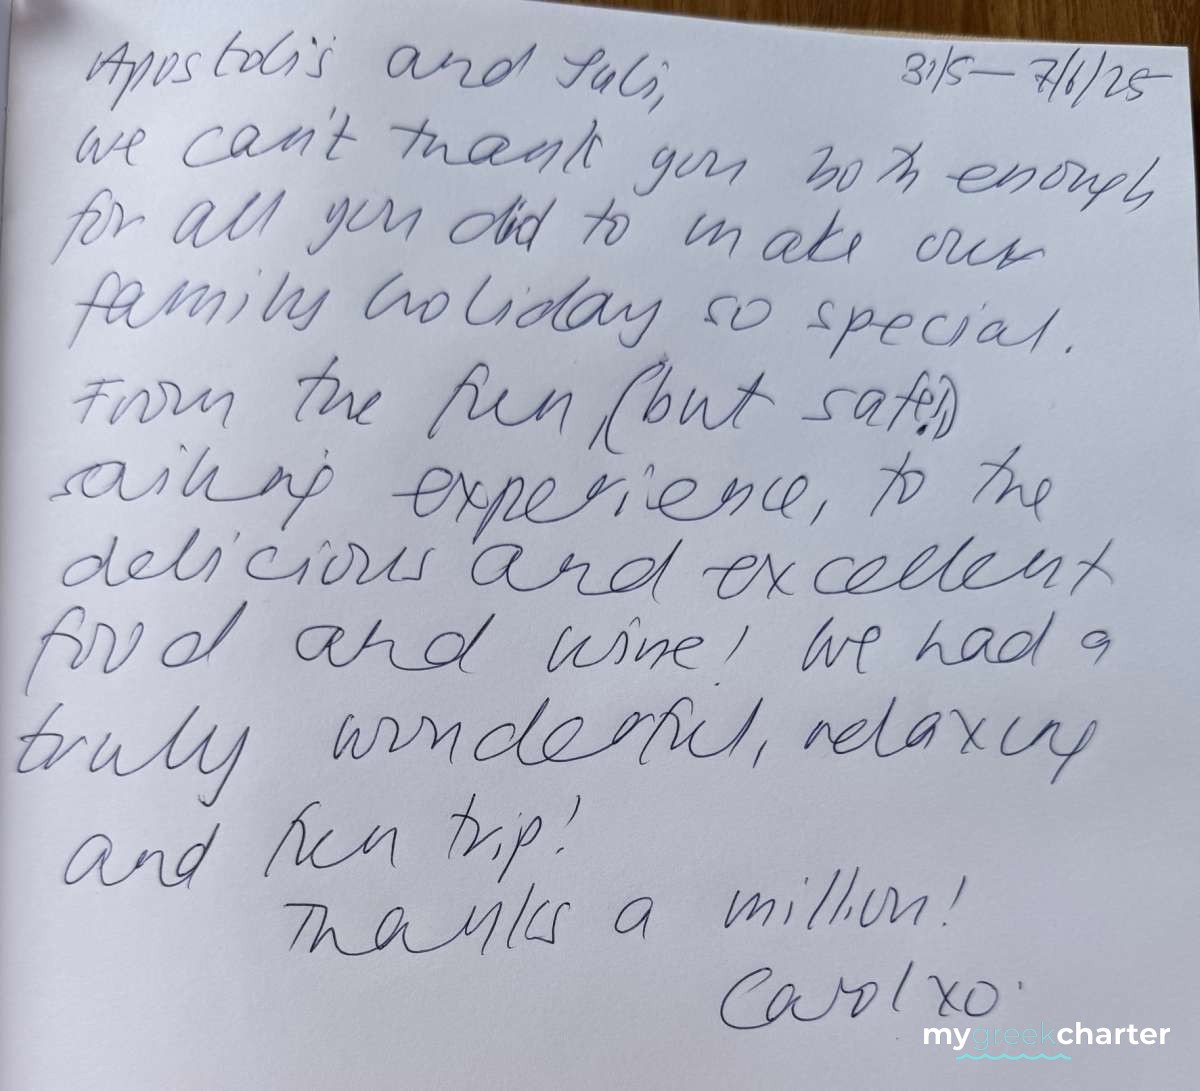 Apostolis and Juli, 31/5 — 7/6/25
we can't thank you both enough
for all you did to make our
family holiday so special.
From the fun, (but safe!)
sailing experience, to the
delicious and excellent
food and wine! We had a
truly wonderful, relaxing
and fun trip!
Thanks a million!
Carol xo
mygreekcharter